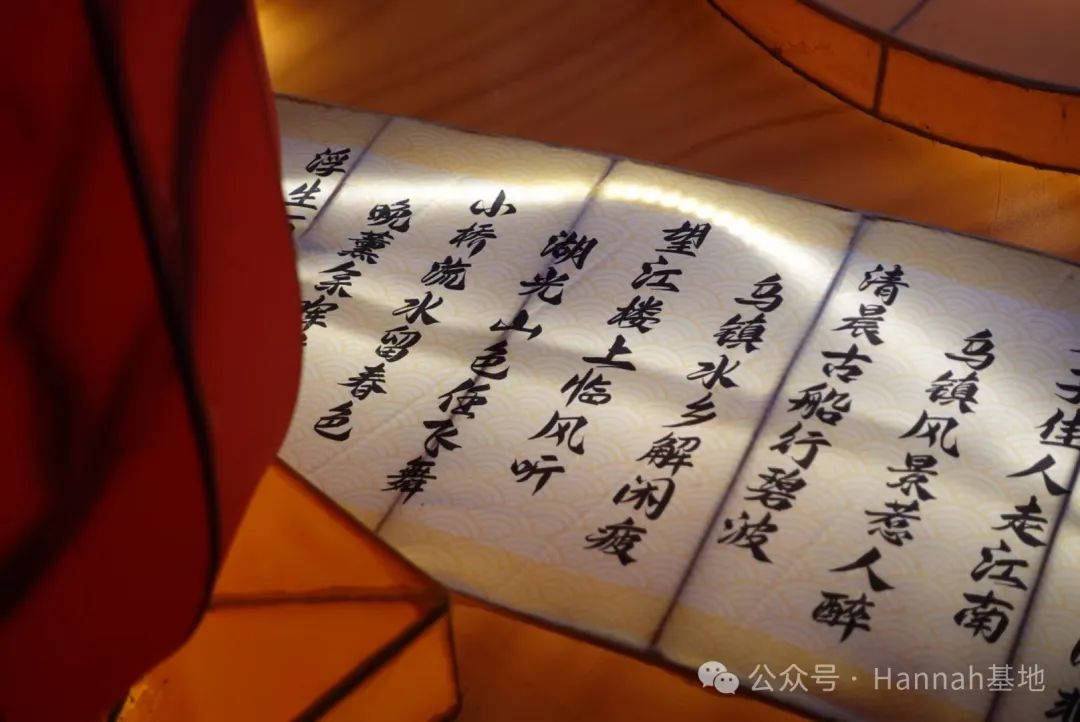 子佳人走江南
乌镇风景惹人醉
清晨古船行碧波
乌镇水乡解闲疲
望江楼上临风听
湖光山色任飞舞
小桥流水留春色
晚薰余晖
浮生一
公众号 · Hannah基地